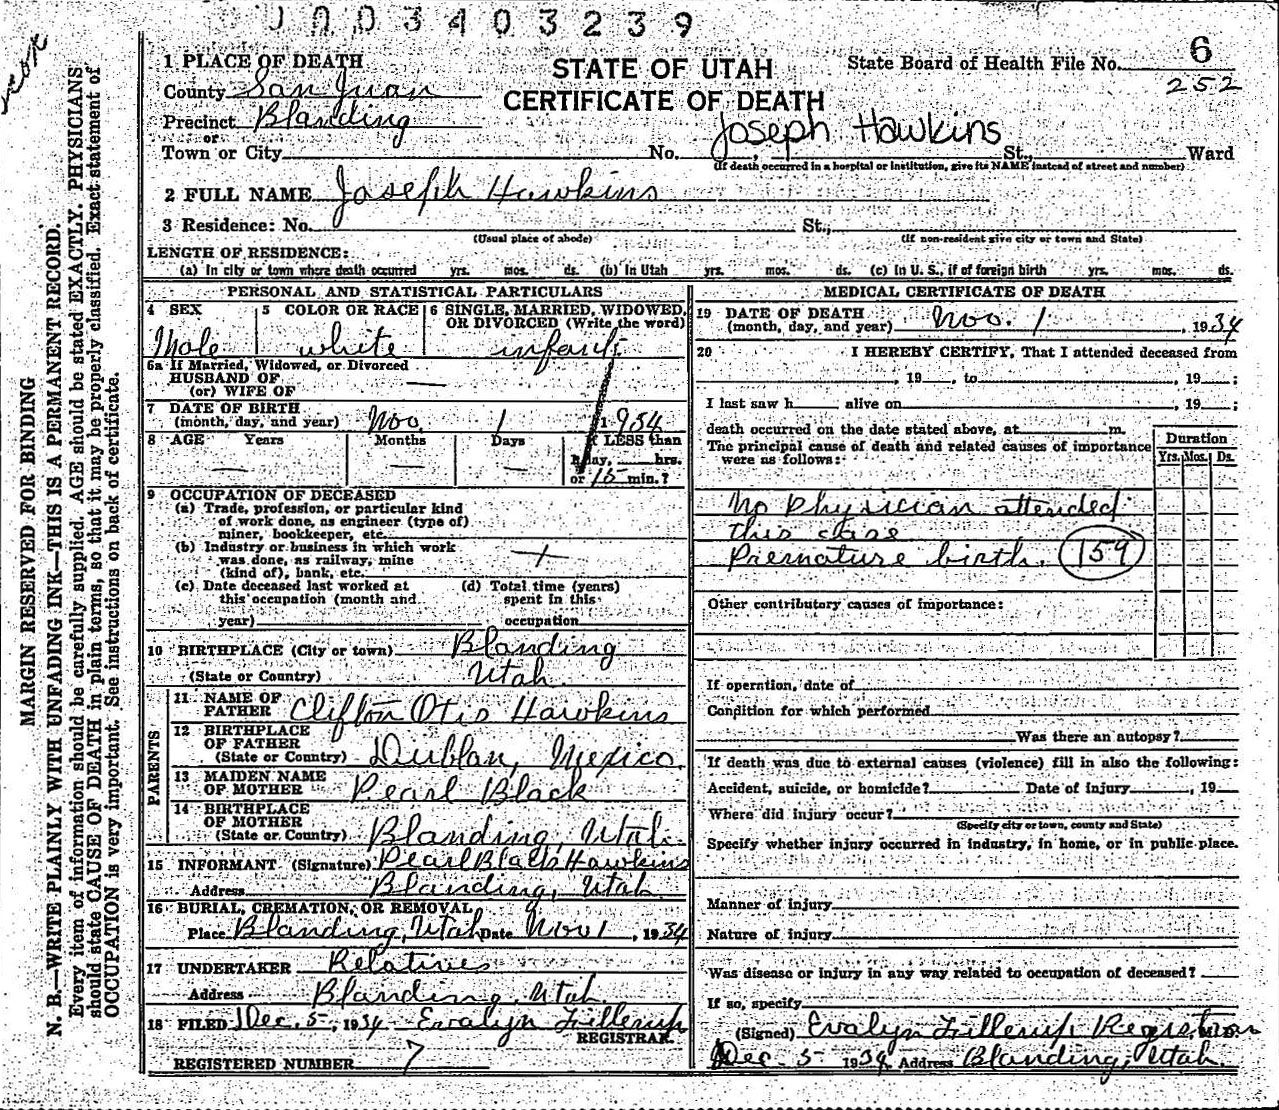 0003403239
1 PLACE OF DEATH
STATE OF UTAH
CERTIFICATE OF DEATH
State Board of Health File No. 6
252
County San Juan
Precinct Blanding
or
Joseph Hawkins
Town or City No. St., Ward
(If death occurred in a hospital or institution, give its NAME instead of street and number)
2 FULL NAME Joseph Hawkins
3 Residence: No. St.,
(Usual place of abode) (If non-resident give city or town and State)
LENGTH OF RESIDENCE:
(a) In city or town where death occurred yrs. mos. ds. (b) In Utah yrs. mos. ds. (c) In U. S., if of foreign birth yrs. mos. ds.
PERSONAL AND STATISTICAL PARTICULARS
4 SEX 5 COLOR OR RACE 6 SINGLE, MARRIED, WIDOWED,
OR DIVORCED (Write the word)
Male white infant
6a If Married, Widowed, or Divorced
HUSBAND OF
(or) WIFE OF —
7 DATE OF BIRTH
(month, day, and year) Nov. 1 1934
8 AGE Years Months Days If LESS than
— — — 1 day, hrs.
or 15 min.?
9 OCCUPATION OF DECEASED
(a) Trade, profession, or particular kind
of work done, as engineer (type of)
miner, bookkeeper, etc.
(b) Industry or business in which work
was done, as railway, mine
(kind of), bank, etc.
(c) Date deceased last worked at (d) Total time (years)
this occupation (month and spent in this
year) occupation
10 BIRTHPLACE (City or town) Blanding
(State or Country) Utah.
PARENTS
11 NAME OF
FATHER Clifton Otis Hawkins
12 BIRTHPLACE
OF FATHER
(State or Country) Dublan, Mexico.
13 MAIDEN NAME
OF MOTHER Pearl Black
14 BIRTHPLACE
OF MOTHER
(State or Country) Blanding, Utah.
15 INFORMANT (Signature) Pearl Black Hawkins
Address Blanding, Utah
16 BURIAL, CREMATION, OR REMOVAL
Place Blanding, Utah Date Nov 1, 1934
17 UNDERTAKER Relatives
Address Blanding, Utah.
18 FILED Dec. 5, 1934 Evalyn Fillerup
REGISTRAR.
REGISTERED NUMBER 7
MEDICAL CERTIFICATE OF DEATH
19 DATE OF DEATH
(month, day, and year) Nov. 1, 1934
20 I HEREBY CERTIFY, That I attended deceased from
, 19 , to , 19 ;
I last saw h alive on , 19 ;
death occurred on the date stated above, at m.
The principal cause of death and related causes of importance
were as follows:
Duration
Yrs. Mos. Ds.
No physician attended
this case
Premature birth. 159
Other contributory causes of importance:
If operation, date of
Condition for which performed
Was there an autopsy?
If death was due to external causes (violence) fill in also the following:
Accident, suicide, or homicide? Date of injury , 19
Where did injury occur?
(Specify city or town, county and State)
Specify whether injury occurred in industry, in home, or in public place.
Manner of injury
Nature of injury
Was disease or injury in any way related to occupation of deceased?
If so, specify
(Signed) Evalyn Fillerup Registrar M. D.
Dec - 5 1934 Address Blanding, Utah.
MARGIN RESERVED FOR BINDING
N. B.—WRITE PLAINLY WITH UNFADING INK—THIS IS A PERMANENT RECORD.
Every item of information should be carefully supplied. AGE should be stated EXACTLY. PHYSICIANS
should state CAUSE OF DEATH in plain terms, so that it may be properly classified. Exact statement of
OCCUPATION is very important. See instructions on back of certificate.